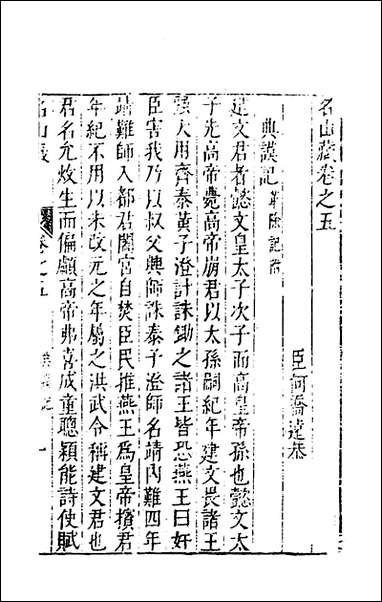 名山藏卷之五
臣何喬遠恭
典謨記 革除記附
建文君者懿文皇太子次子而高皇帝孫也懿文太
子先高帝薨高帝崩君以太孫嗣紀年建文畏諸王
彊大用齊泰黃子澄計誅鋤之諸王皆恐燕王曰奸
臣害我乃以叔父興師誅泰子澄師名靖內難四年
靖難師入都君闔宮自焚臣民推燕王為皇帝擯君
年紀不用以未改元之年屬之洪武今稱建文君也
君名允炆生而偏顱高帝弗喜成童聰穎能詩使賦
名山藏 卷之五 典謨記 一